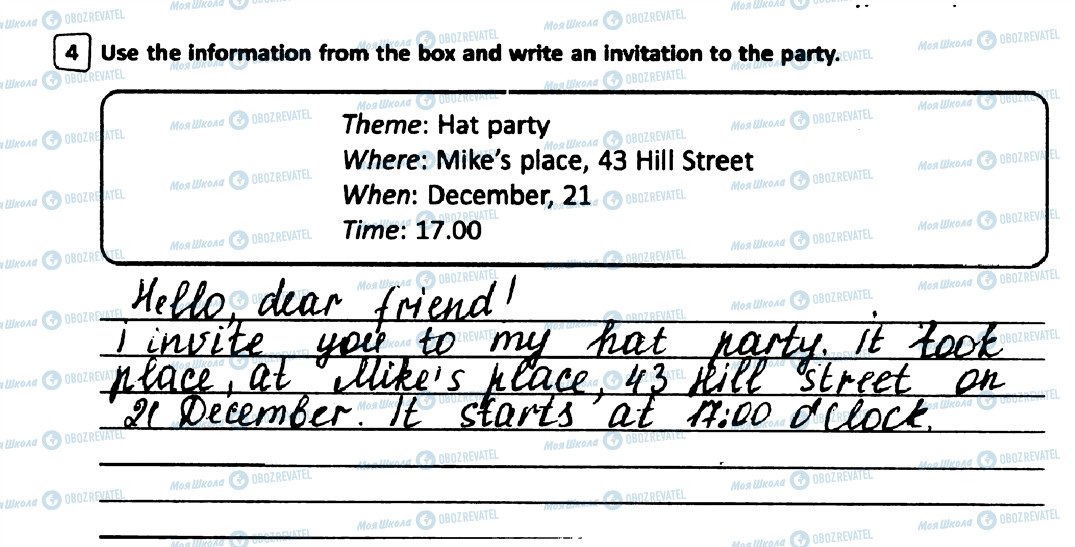 4 Use the information from the box and write an invitation to the party.
Theme: Hat party
Where: Mike's place, 43 Hill Street
When: December, 21
Time: 17.00
Hello, dear friend!
i invite you to my hat party. it took
place, at Mike's place, 43 Hill street on
21 December. It starts at 17:00 o'clock.
МояШкола OBOZREVATEL